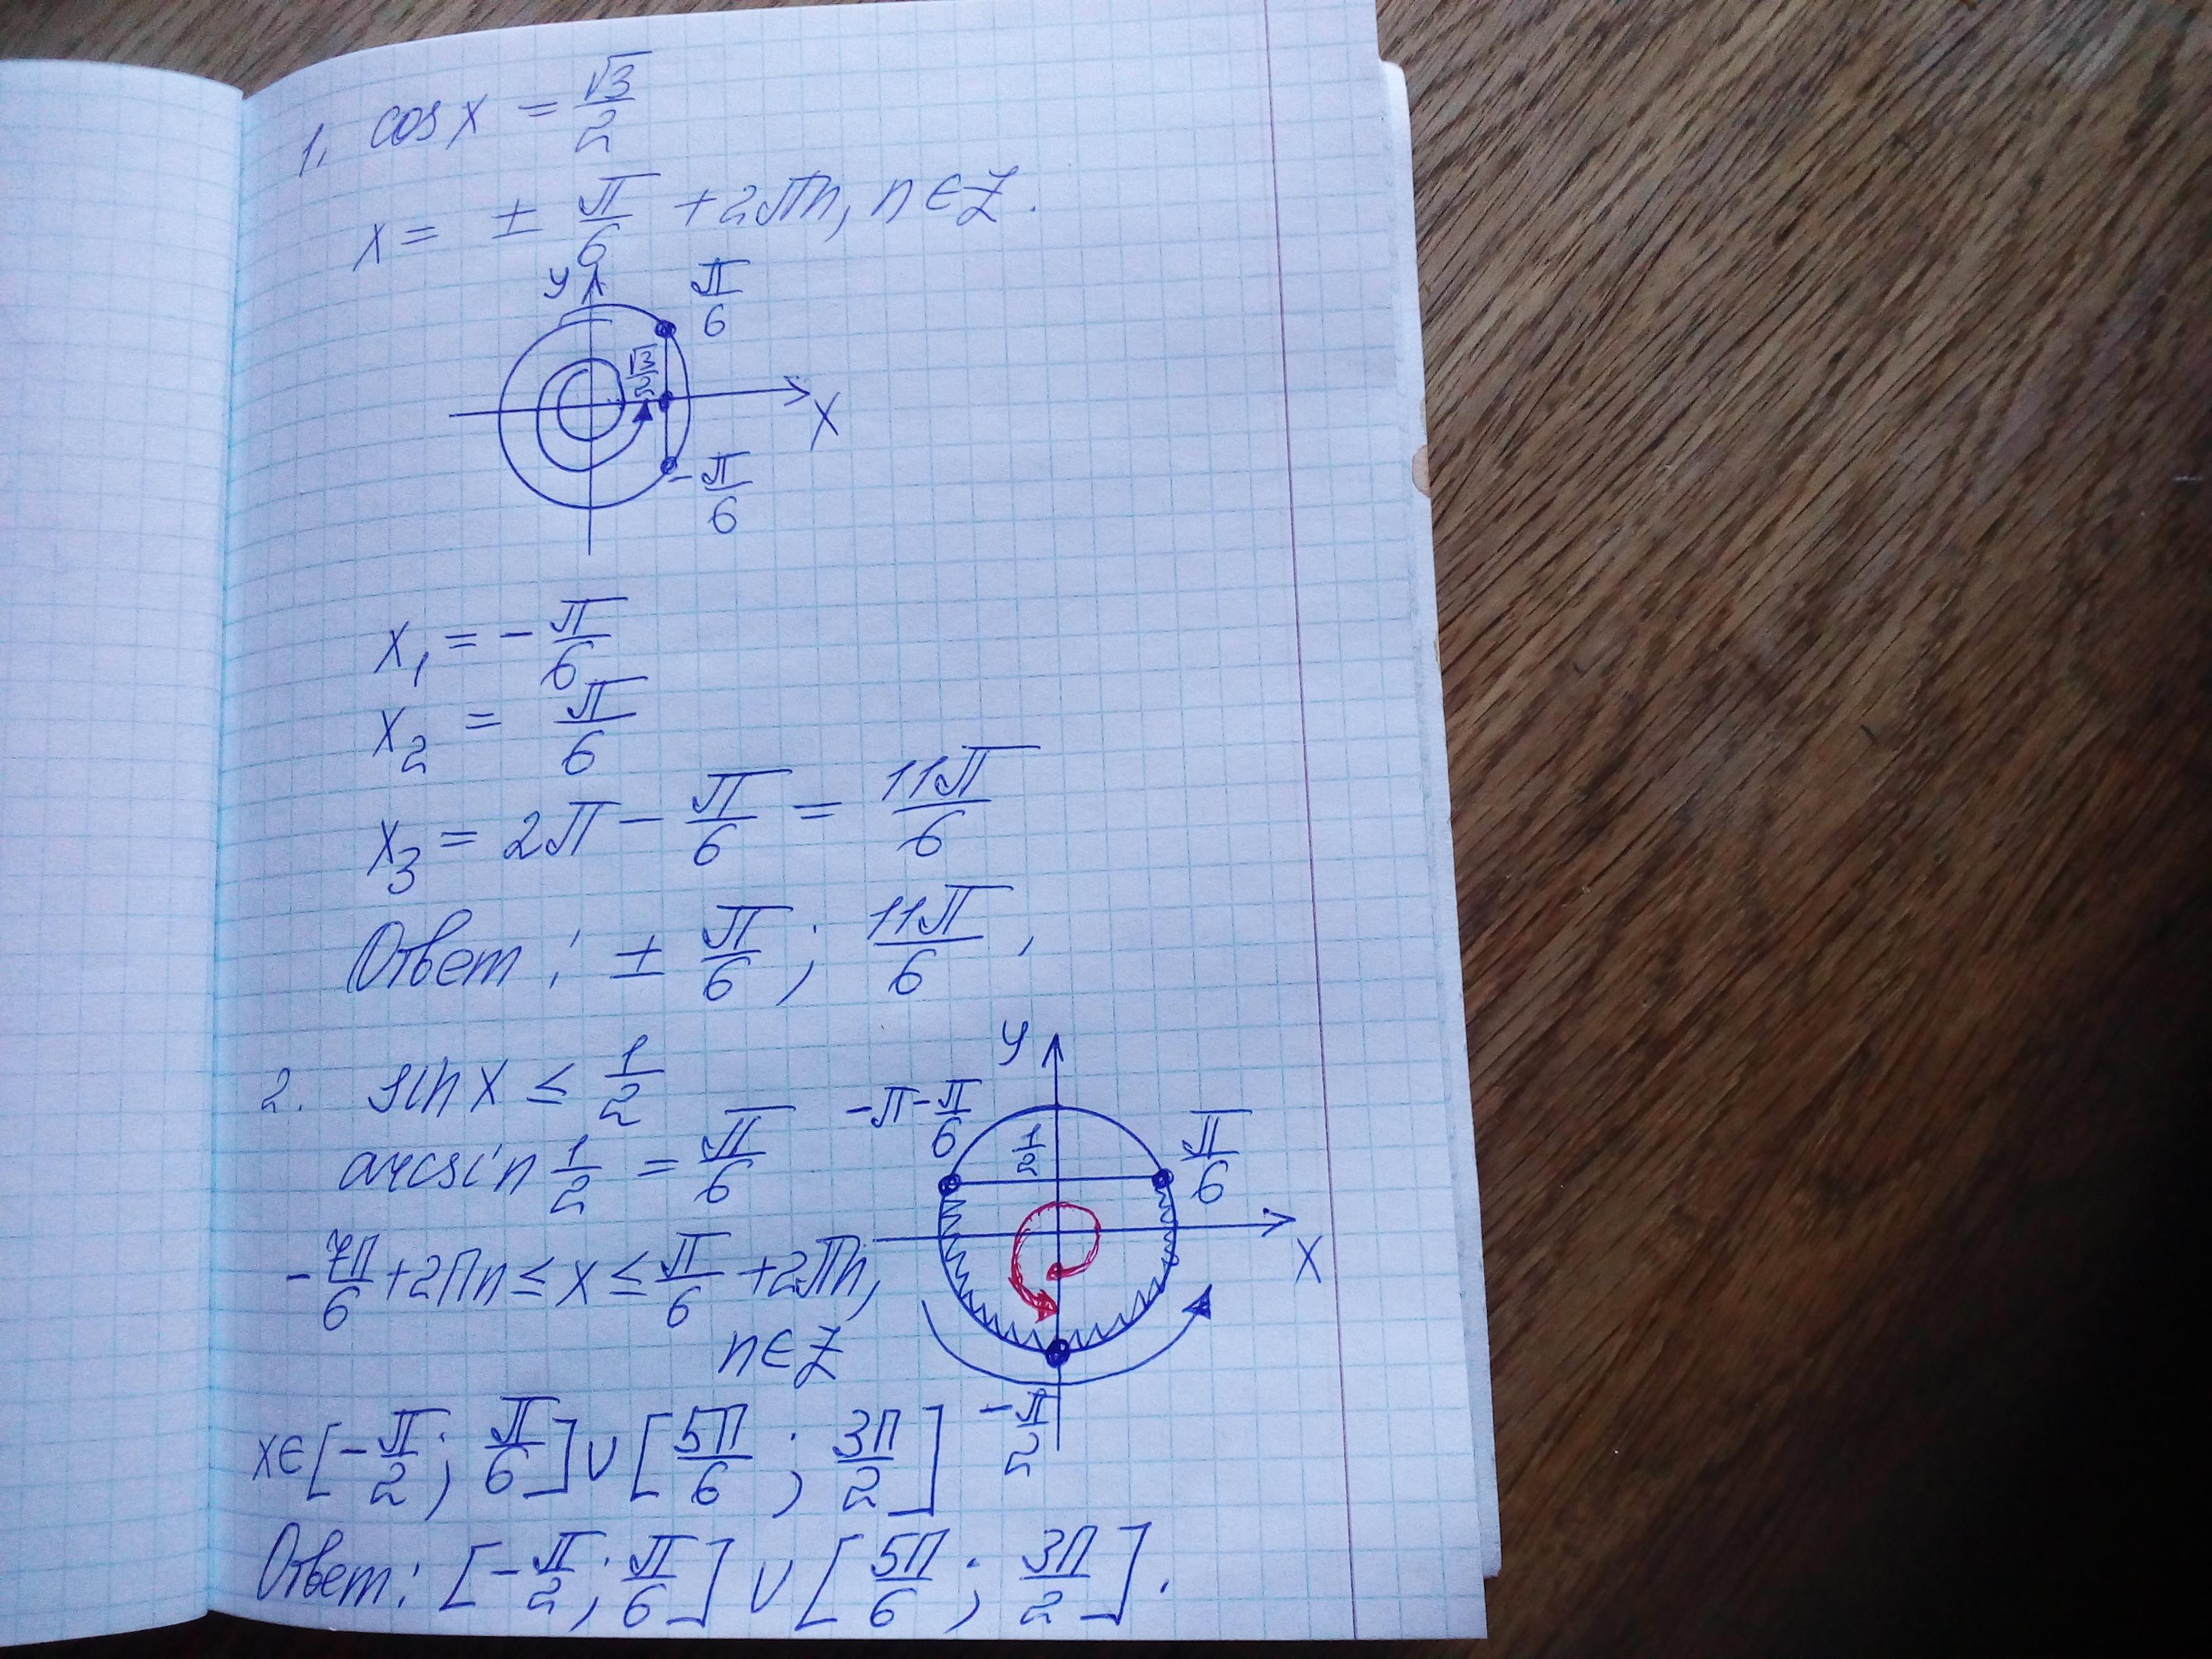 1. cos x = √3/2
x = ± π/6 + 2πn, n ∈ Z.
y
π/6
√3/2
x
-π/6
x₁ = - π/6
x₂ = π/6
x₃ = 2π - π/6 = 11π/6
Ответ: ± π/6; 11π/6.
2. sin x ≤ 1/2
arcsin 1/2 = π/6
-7π/6 + 2πn ≤ x ≤ π/6 + 2πn,
n ∈ Z
y
-π-π/6
1/2
π/6
x
-π/2
x ∈ [-π/2; π/6] ∪ [5π/6; 3π/2]
Ответ: [-π/2; π/6] ∪ [5π/6; 3π/2].